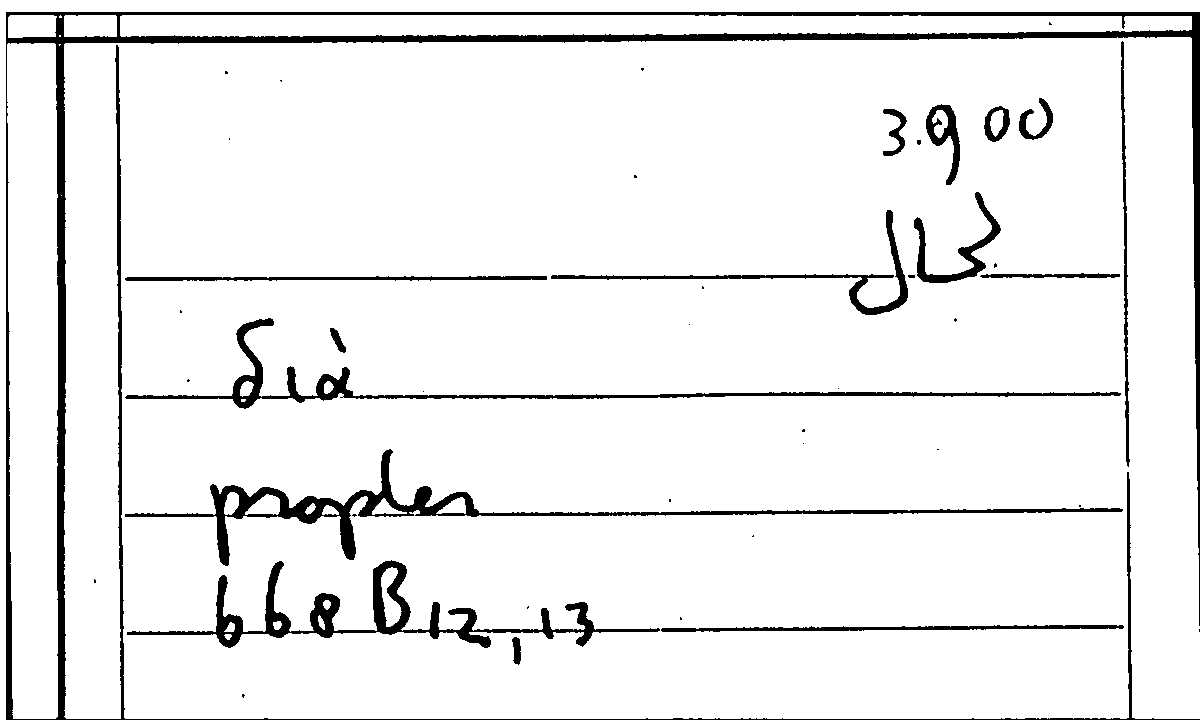 3.900
διὰ
propter
668 B 12, 13